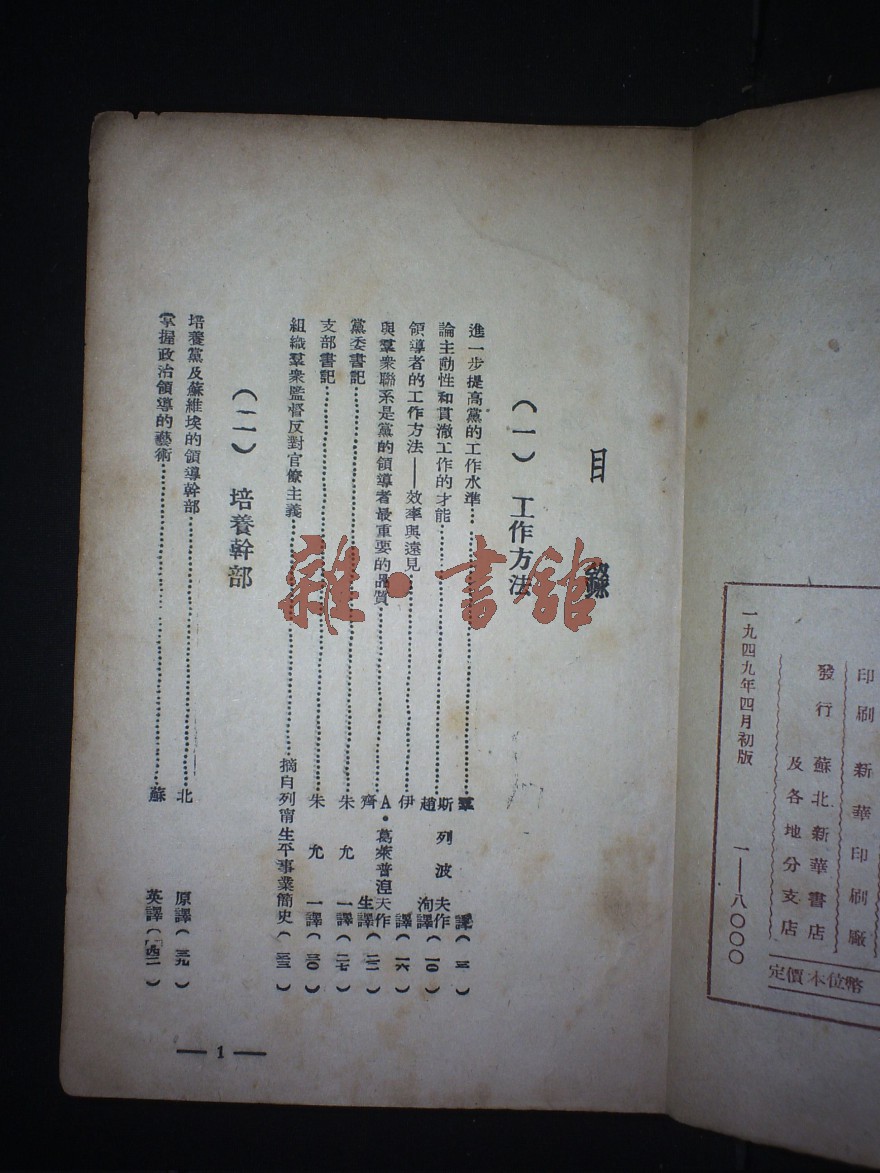 目錄
（一） 工作方法
進一步提高黨的工作水準……羣譯（三）
論主動性和貫澈工作的才能……斯列波夫作
趙洵譯（一〇）
領導者的工作方法——效率與遠見……伊譯（一六）
與羣衆聯系是黨的領導者最重要的品質……A·葛萊普涅夫作
齊生譯（二二）
黨委書記……朱允一譯（二七）
支部書記……朱允一譯（三〇）
組織羣衆監督反對官僚主義……摘自列甯生平事業簡史（三三）
（二） 培養幹部
培養黨及蘇維埃的領導幹部……北原譯（三九）
掌握政治領導的藝術……蘇英譯（四二）
— 1 —
印刷 新華印刷廠
發行 蘇北新華書店
及各地分支店
一九四九年四月初版 一—八〇〇〇
定價本位幣
雜·書館